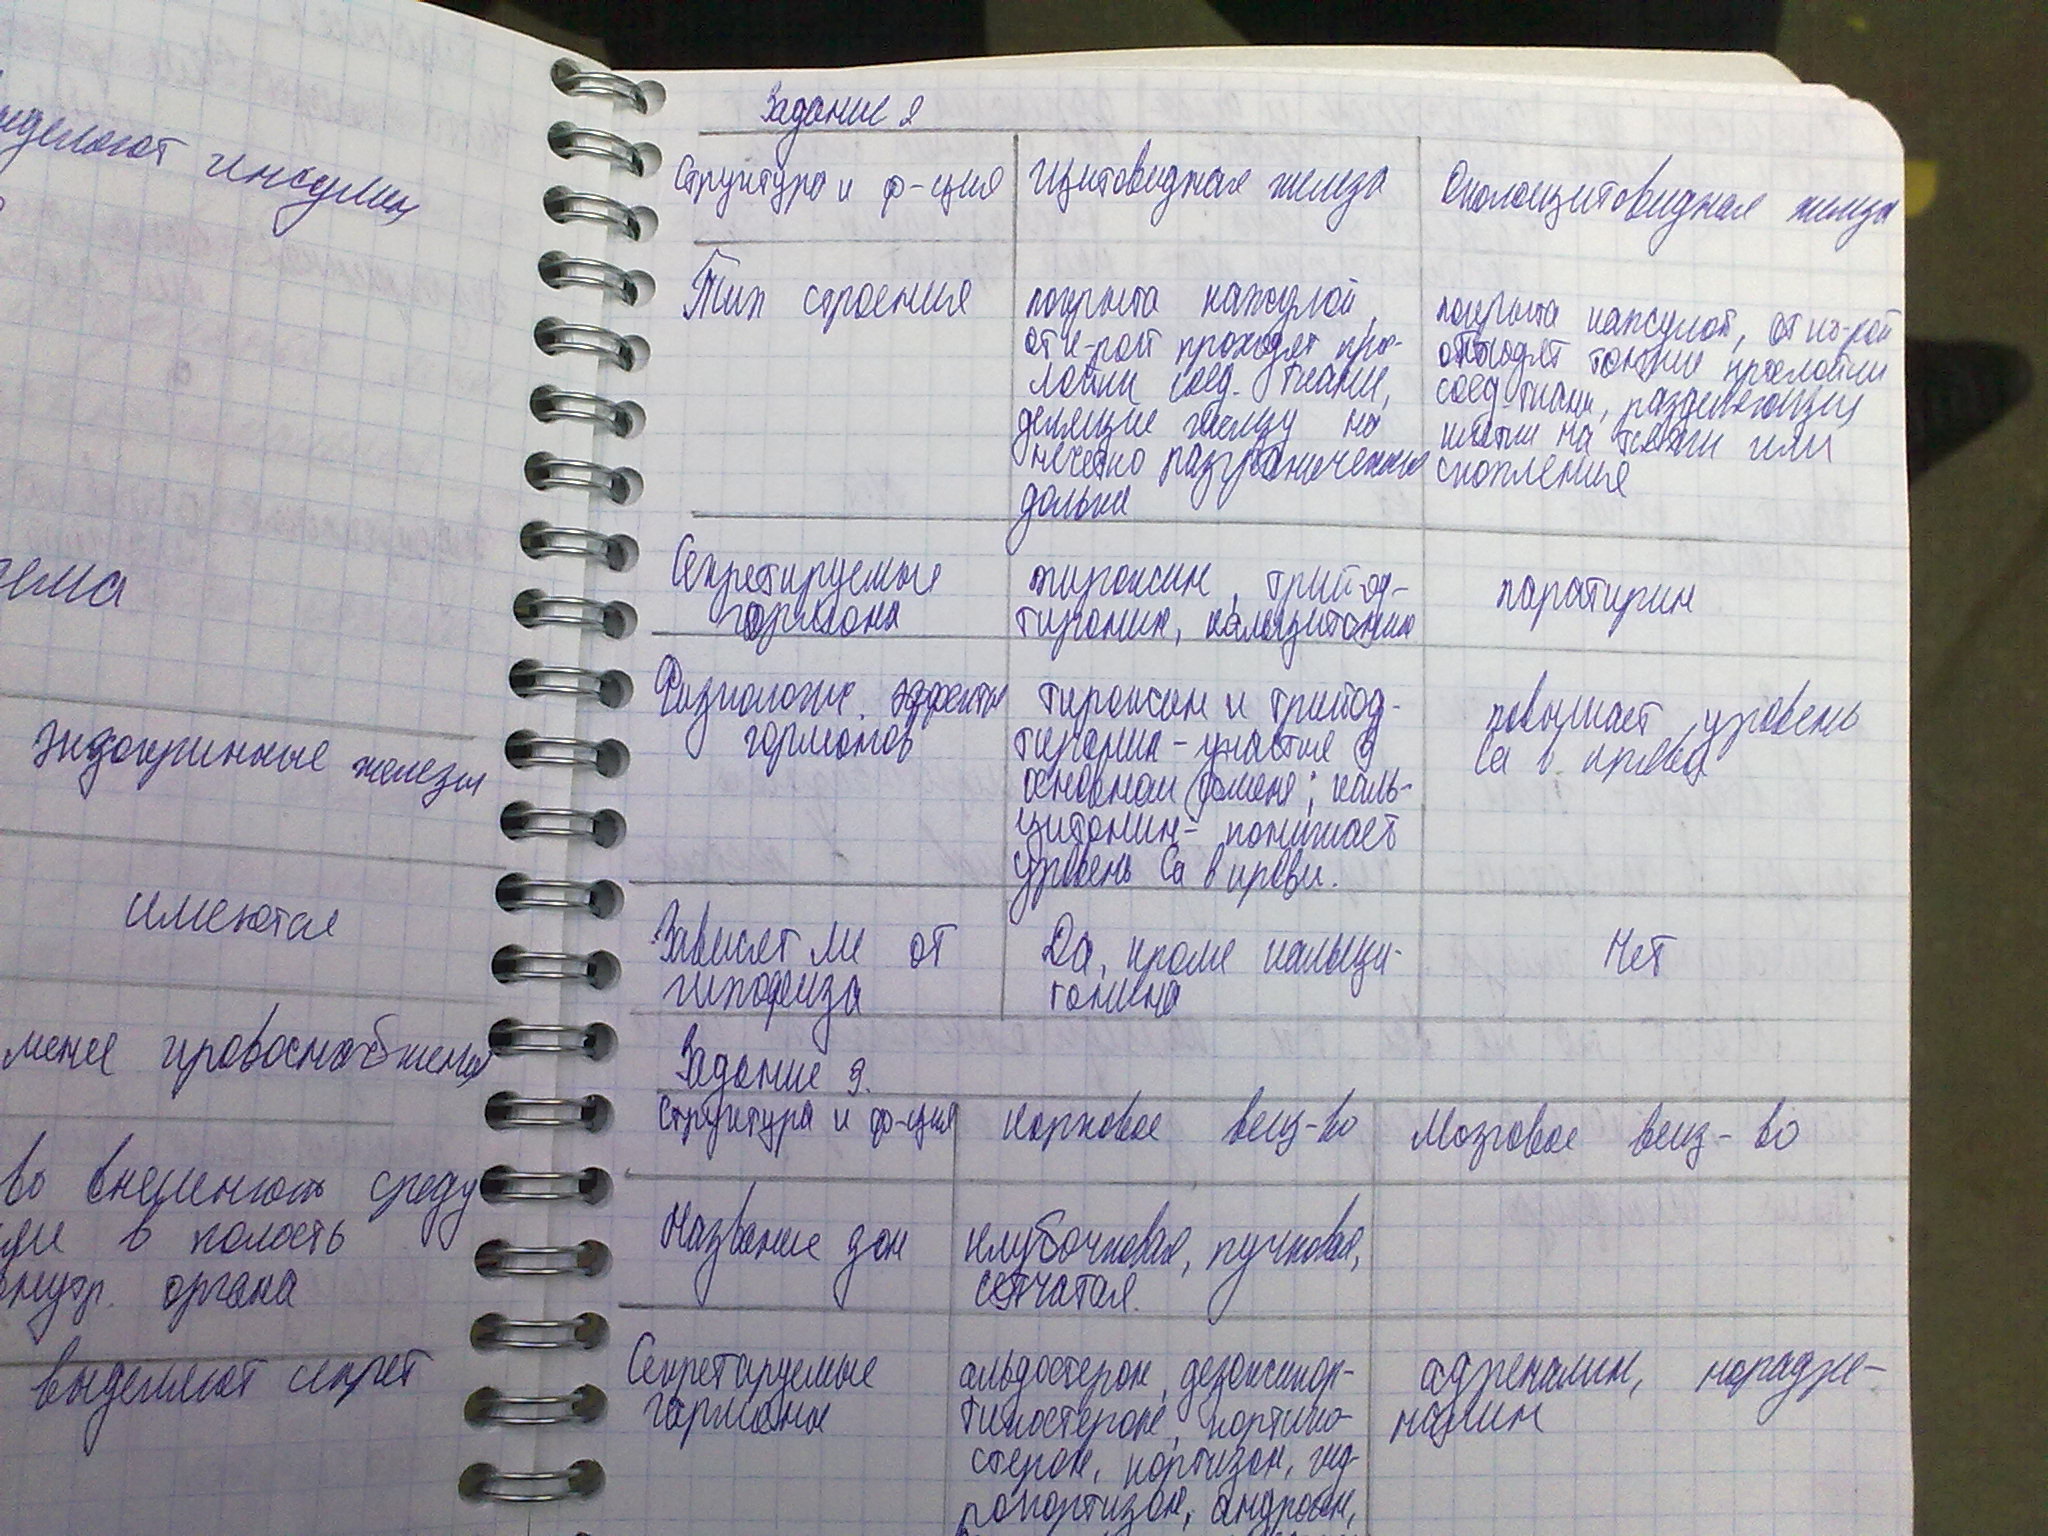 выделяют инсулин
эндокринные железы
имеются
менее кровоснабжены
во внешнюю среду
или в полость
внутр. органа
выделяют секрет
Задание 2
Структура и ф-ция
Щитовидная железа
Околощитовидная железа
Тип строения
покрыта капсулой,
от к-рой проходят про-
слойки соед. ткани,
делящие железу на
нечетко разграниченные
дольки
покрыта капсулой, от к-рой
отходят тонкие прослойки
соед. ткани, разделяющие
клетки на тяжи или
скопления
Секретируемые
гормоны
тироксин, трийод-
тиронин, кальцитонин
паратирин
Физиологич. эффекты
гормонов
тироксин и трийод-
тиронин - участие в
основном обмене; каль-
цитонин - понижает
уровень Ca в крови.
повышает уровень
Ca в крови
Зависят ли от
гипофиза
Да, кроме кальци-
тонина
Нет
Задание 3.
Структура и ф-ция
Корковое вещ-во
Мозговое вещ-во
Название зон
клубочковая, пучковая,
сетчатая.
Секретируемые
гормоны
альдостерон, дезоксикор-
тикостерон, кортико-
стерон, кортизон, гид-
рокортизон, андроген,
адреналин, норадре-
налин